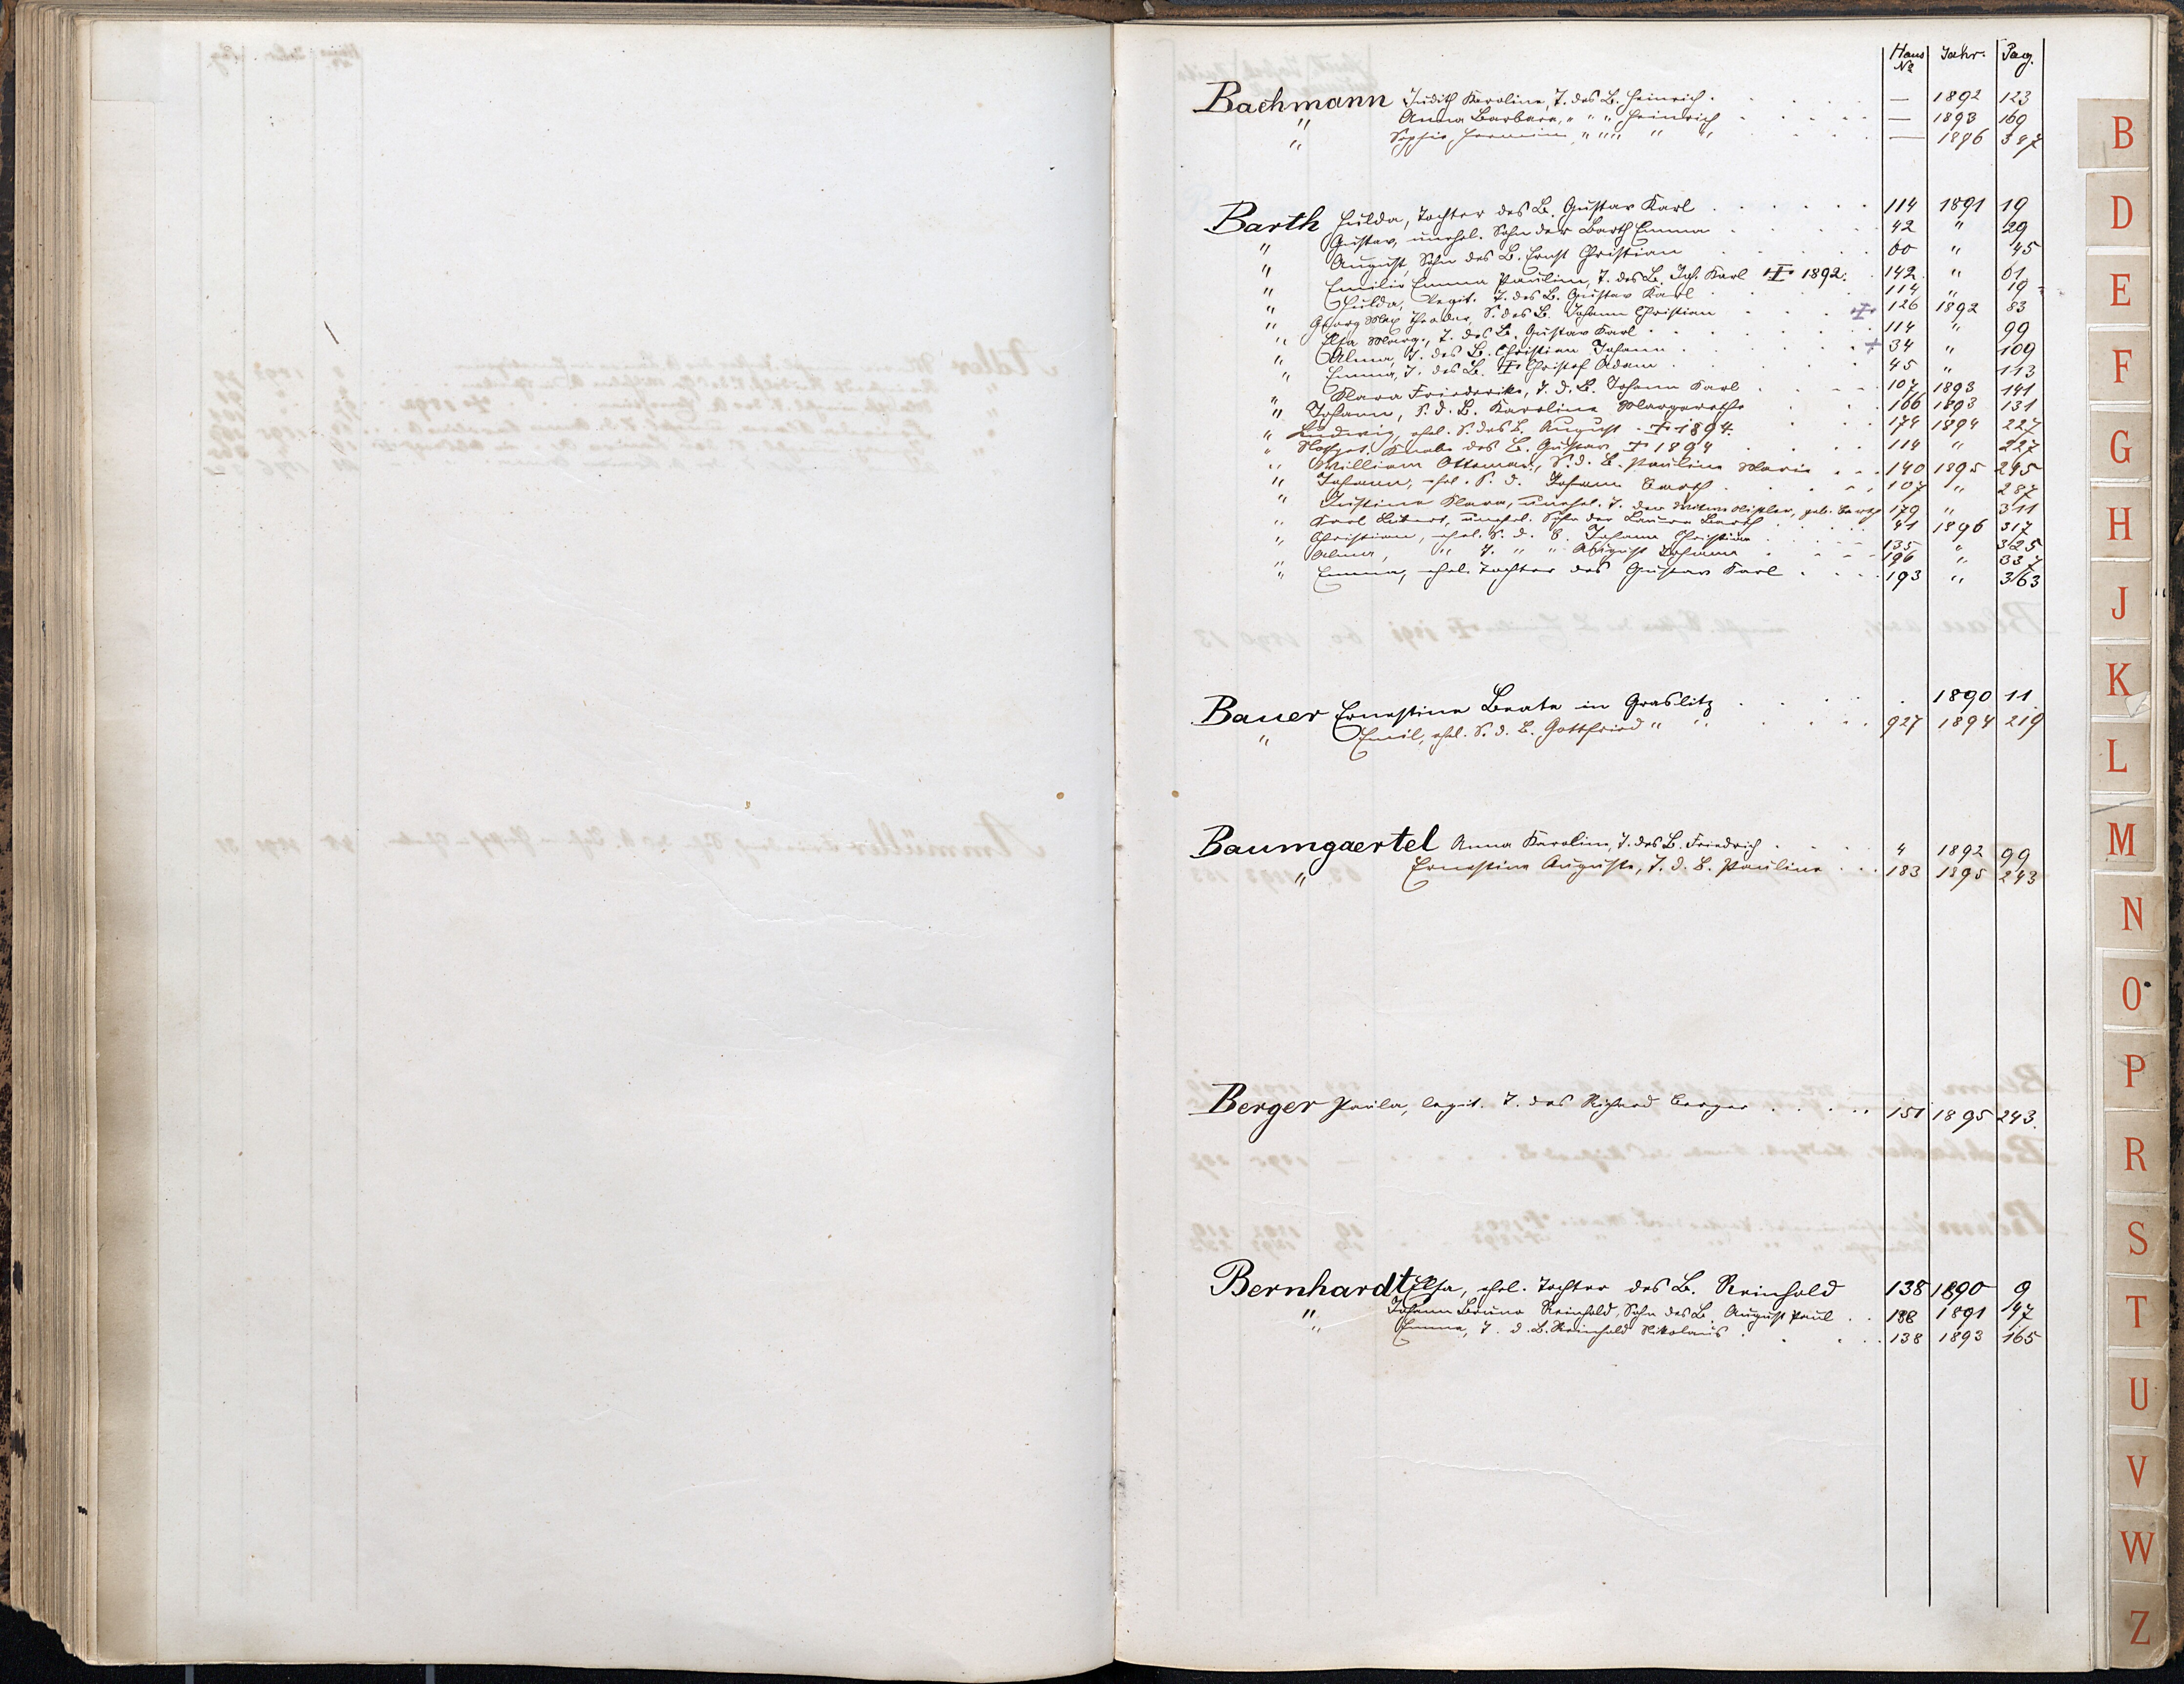 Haus № Jahr. Pag.
Bachmann Judith Karoline, T. des B. Heinrich . — 1892 123
" Anna Barbara, " " " Heinrich — 1893 169
" Sophie Hermine, " " " " " — 1896
Barth Hulda, Tochter des B. Gustav Karl 114 1891 19
" Gustav, unehel. Sohn der Barth Emma 42 " 29
" August, Sohn des B. Ernst Christian 60 " 45
" Emilie Emma Pauline, T. des B. Joh. Karl ✝ 1892. 142. " 61
" Hulda, Legit. T. des B. Gustav Karl 114 " 19
" Georg Max Theodor, S. des B. Johann Christian ✝ 126 1892 83
" Elsa Marg., T. des B. Gustav Karl 114 " 99
" Alma, T. des B. Christian Johann ✝ 34 " 109
" Emma, T. des B. Christof Adam 45 " 113
" Klara Friederike, T. d. B. Johann Karl 107 1893 141
" Johann, S. d. B. Karoline Margarethe 166 1893 131
" Ludwig, ehel. S. des B. August ✝ 1894. 174 1894 227
" Knabe des B. Gustav ✝ 1894 114 " 227
" William Ottomar, S. d. B. Pauline Marie 140 1895 245
" Johann, ehel. S. d. Johann Barth 107 " 287
" Justine Klara, unehel. T. der Witwe geb. Barth 179 " 311
" Karl unehel. Sohn der Laura Barth 41 1896 317
" Christian, ehel. S. d. B. Johann Christian 135 " 325
" Alma, " T. " " August Johann 196 " 337
" Emma, ehel. Tochter des Gustav Karl 193 " 363
Bauer Ernestine Beate in Graslitz 1890 11
" Emil, ehel. S. d. B. Gottfried " " 927 1894 219
Baumgaertel Anna Karoline, T. des B. Friedrich 4 1892 99
" Ernestine Auguste, T. d. B. Pauline 183 1895 243
Berger Paula, legit. T. des Richard Berger 151 1895 243.
Bernhardt Elsa, ehel. Tochter des B. Reinhold 138 1890 9
" Johann Bruno Reinhold, Sohn des B. August Paul 138 1891 47
" Emma, T. d. B. Reinhold Nikolaus 138 1893 165
B
D
E
F
G
H
J
K
L
M
N
O
P
R
S
T
U
V
W
Z